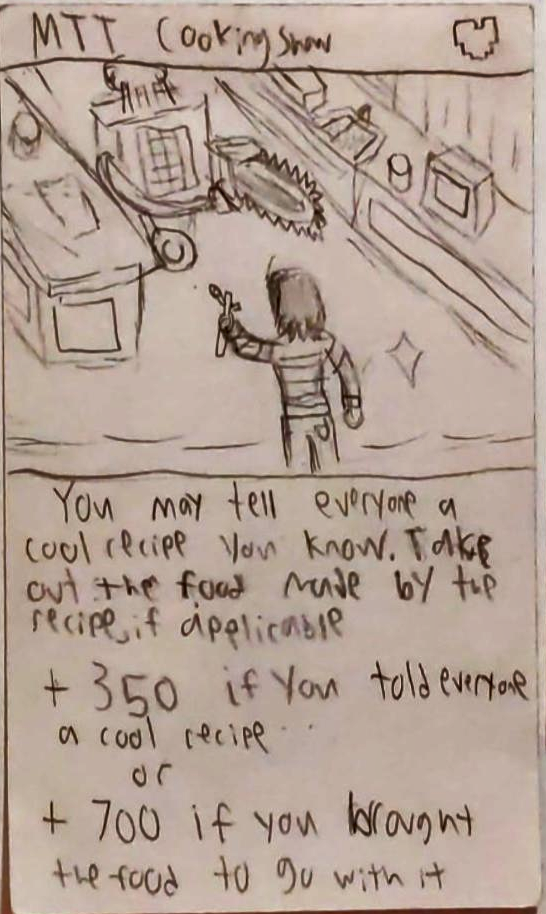 MTT Cooking show
AHHH
You may tell everyone a
cool recipe you know. Take
out the food made by the
recipe, if applicable
+ 350 if you told everyone
a cool recipe
or
+ 700 if you brought
the food to go with it